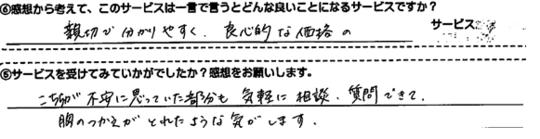 ⑥感想から考えて、このサービスは一言で言うとどんな良いことになるサービスですか？
親切で分かりやすく、良心的な価格の サービス
⑤サービスを受けてみていかがでしたか？感想をお願いします。
こちらが不安に思っていた部分も気軽に相談、質問できて、
胸のつかえがとれたような気がします。